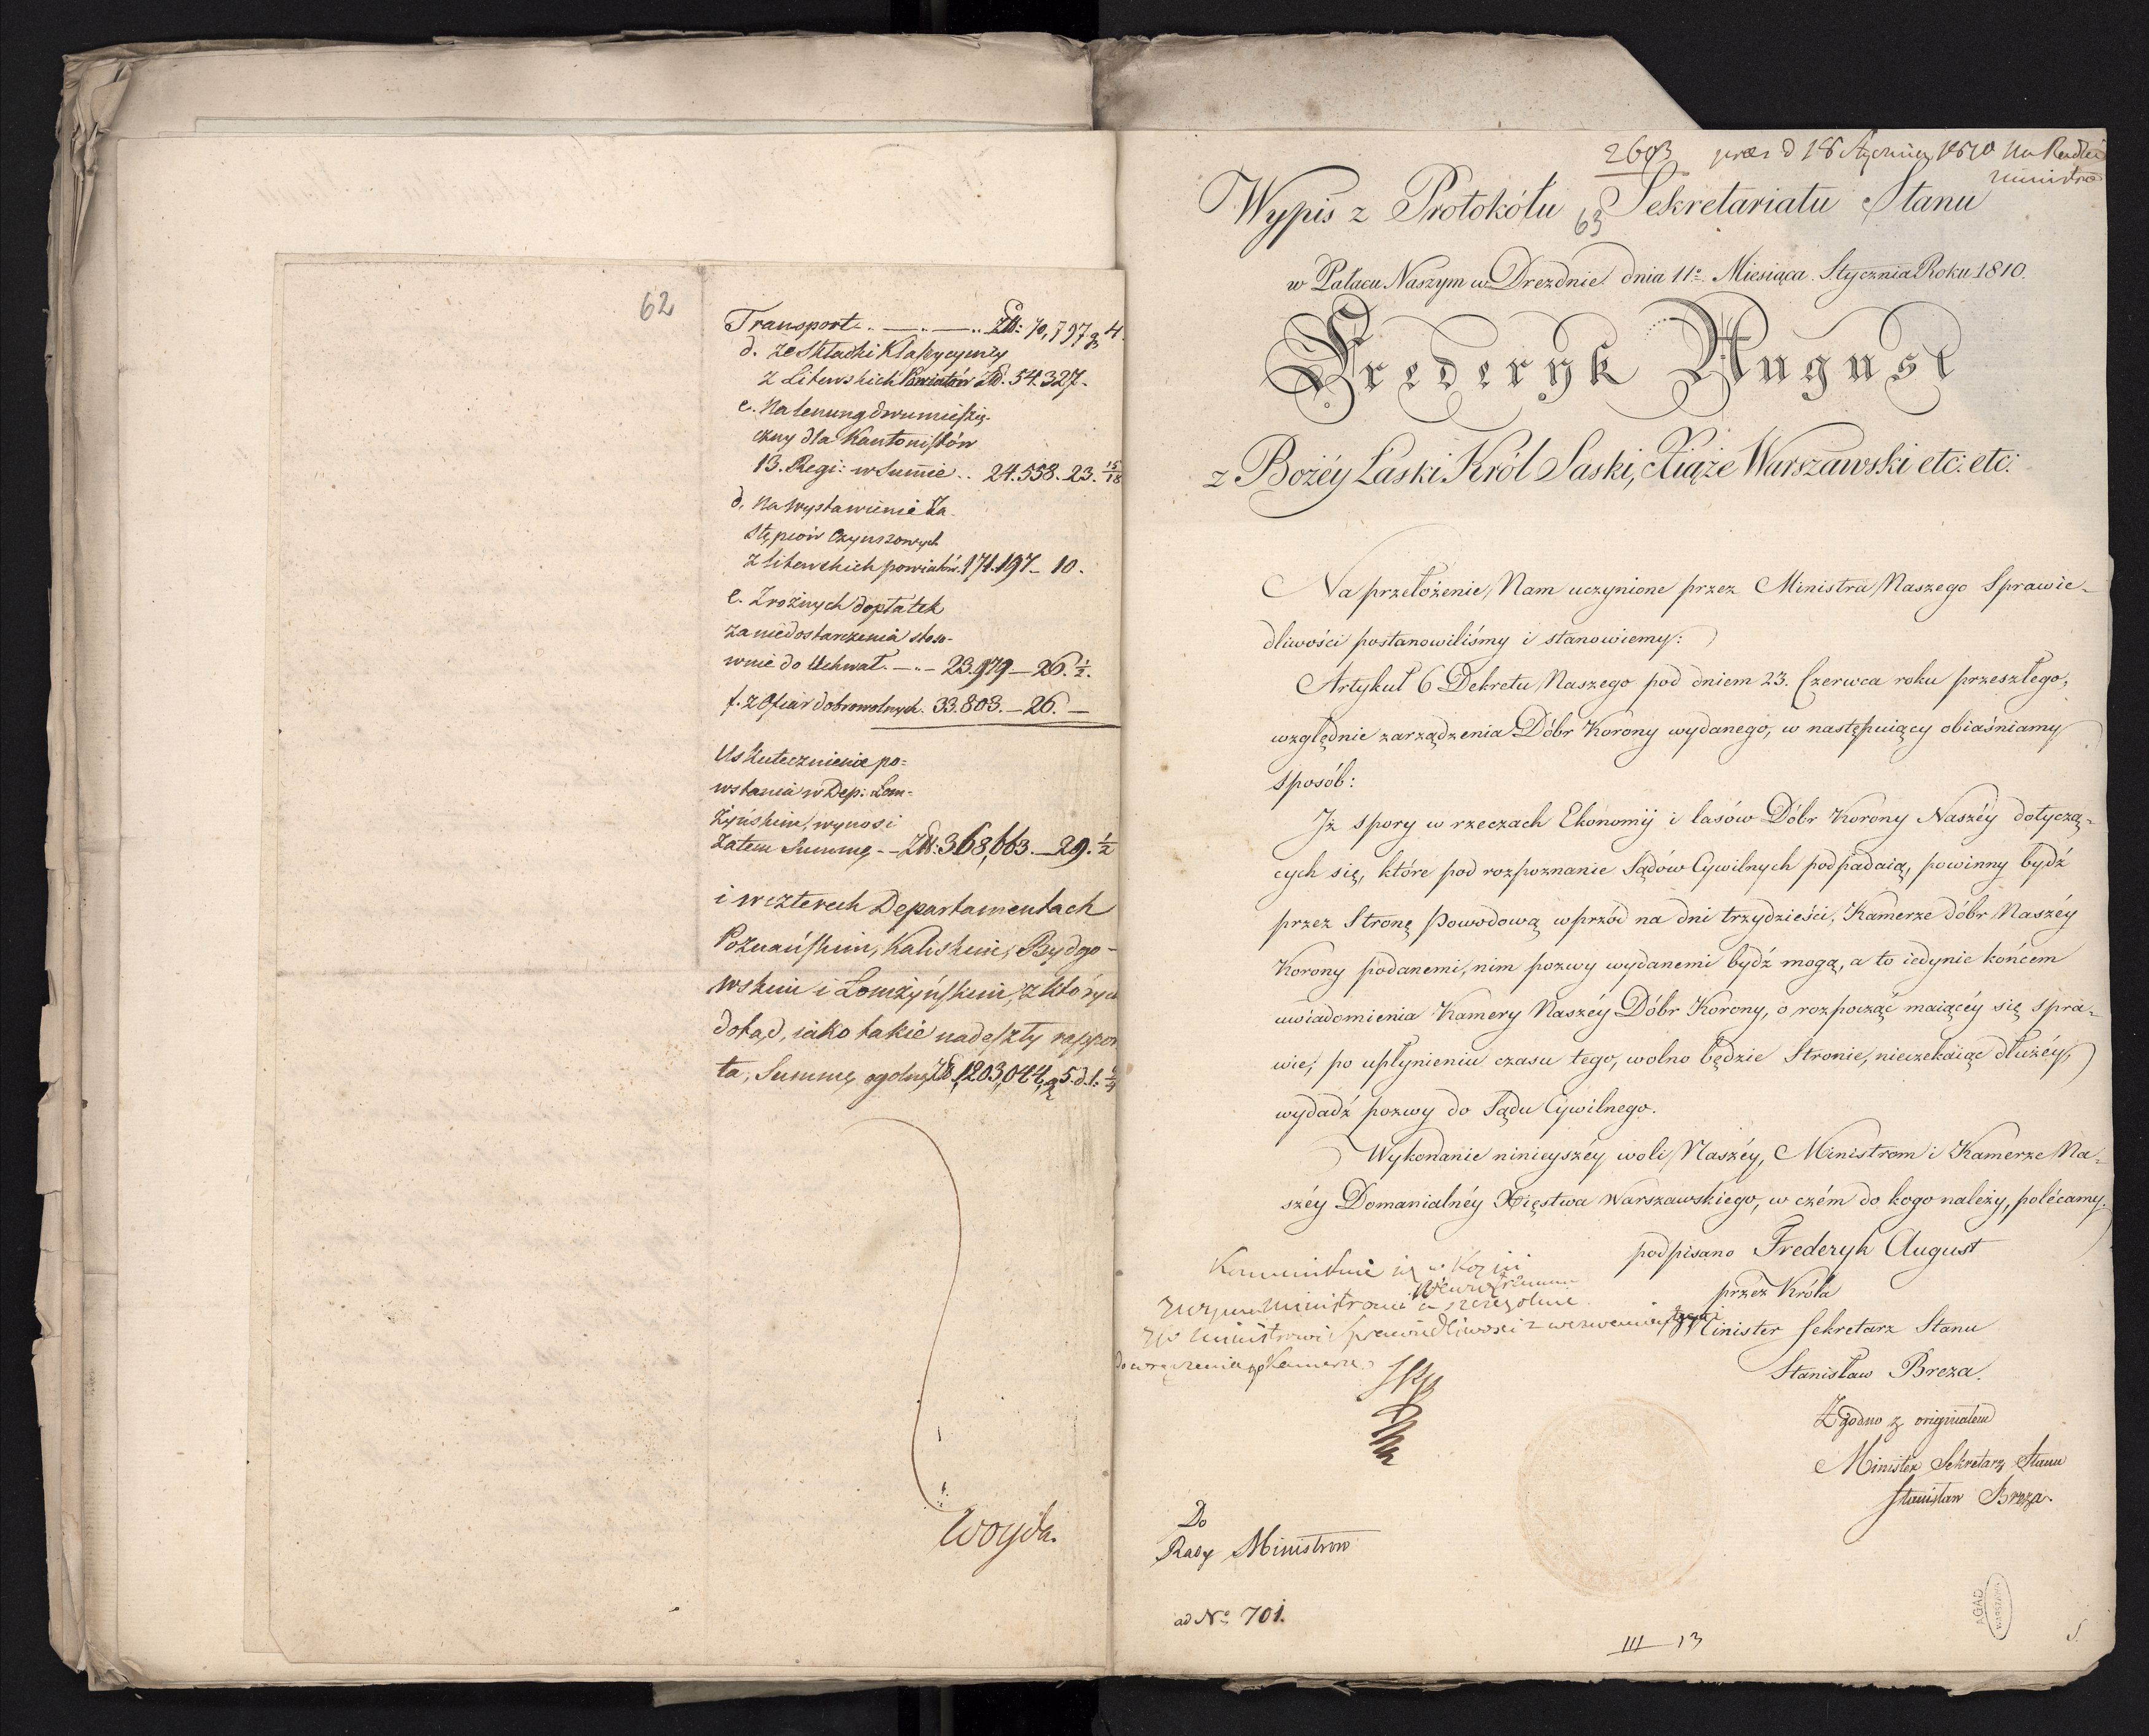 62
Transport .. — .. — .. Złł: 70,797 gr 4.
d. ze Składki Klassycznéy
z Litewskich Powiatów Złł. 54.327.
c. Na lenung dwumiesię-
czny dla Kantonistów
13. Regi: w Sumie .. 24.558. 23. 15/18
d. Na wystawienie Za-
stępców Czynszowych
z litewskich powiatów. 171.197 — 10.
e. Z rożnych dopłatek
za niedostarczenia stoso-
wnie do Uchwał. — .. — 23.979 — 26. ½.
f. z Ofiar dobrowolnych. 33.803. — 26. —
Uskutecznienie po=
wstania w Dep: Łom=
żyńskim, wynosi
zatem Summę - - Złł: 368,663. — 29. ½
i w czterech Departamentach
Poznańskim, Kaliskim, Bydgo-
wskim i Łomżyńskim, z których
dotąd, iako takie nadeszły rappor
ta, Summę ogolną Zł 1,203,044, gr 5. d. 1.
Woyda.
2603 præs d 18 Stycznia 1810 Na Radzie
Ministrów
63
Wypis z Protokółu Sekretariatu Stanu
w Pałacu Naszym w Dreznie dnia 11º Miesiąca Stycznia Roku 1810.
Frederyk August
z Bożéy Łaski Król Saski, Xiąże Warszawski etc: etc:
Na przełożenie Nam uczynione przez Ministra Naszego Sprawie-
dliwości postanowiliśmy i stanowiemy:
Artykuł 6 Dekretu Naszego pod dniem 23. Czerwca roku przeszłego,
względnie zarządzenia Dóbr Korony wydanego, w następuiący obiaśniamy
sposób:
Iż spory w rzeczach Ekonomij i lasów Dóbr Korony Naszéy dotyczą-
cych się, które pod rozpoznanie Sądów Cywilnych podpadaią, powinny bydź
przez Stronę Powodową wprzód na dni trzydzieści, Kamerze dóbr Naszéy
Korony podanemi, nim pozwy wydanemi bydź mogą, a to iedynie końcem
uwiadomienia Kamery Naszéy Dóbr Korony, o rozpocząć maiącéy się spra-
wie, po upłynieniu czasu tego, wolno będzie Stronie, nieczekaiąc dłużéy,
wydadź pozwy do Sądu Cywilnego.
Wykonanie ninieyszéy woli Naszéy, Ministrom i Kamerze Na-
széy Domanialnéy Xięstwa Warszawskiego, w czém do kogo należy, polécamy.
podpisano Frederyk August
przéz Króla
Minister Sekretarz Stanu
Stanisław Breza.
Kommunikuie się w Kopii
Wewnętrznemu
Ministrowi a szczegolnie
JW Ministrowi Sprawiedliwosci z wezwaniem tegoż
do wręczenia Kamerze
Zgodno z originałem
Minister Sekretarz Stanu
Stanisław Breza.
Do
Rady Ministrow
ad Nº 701.
III — 13
AGAD
WARSZAWA